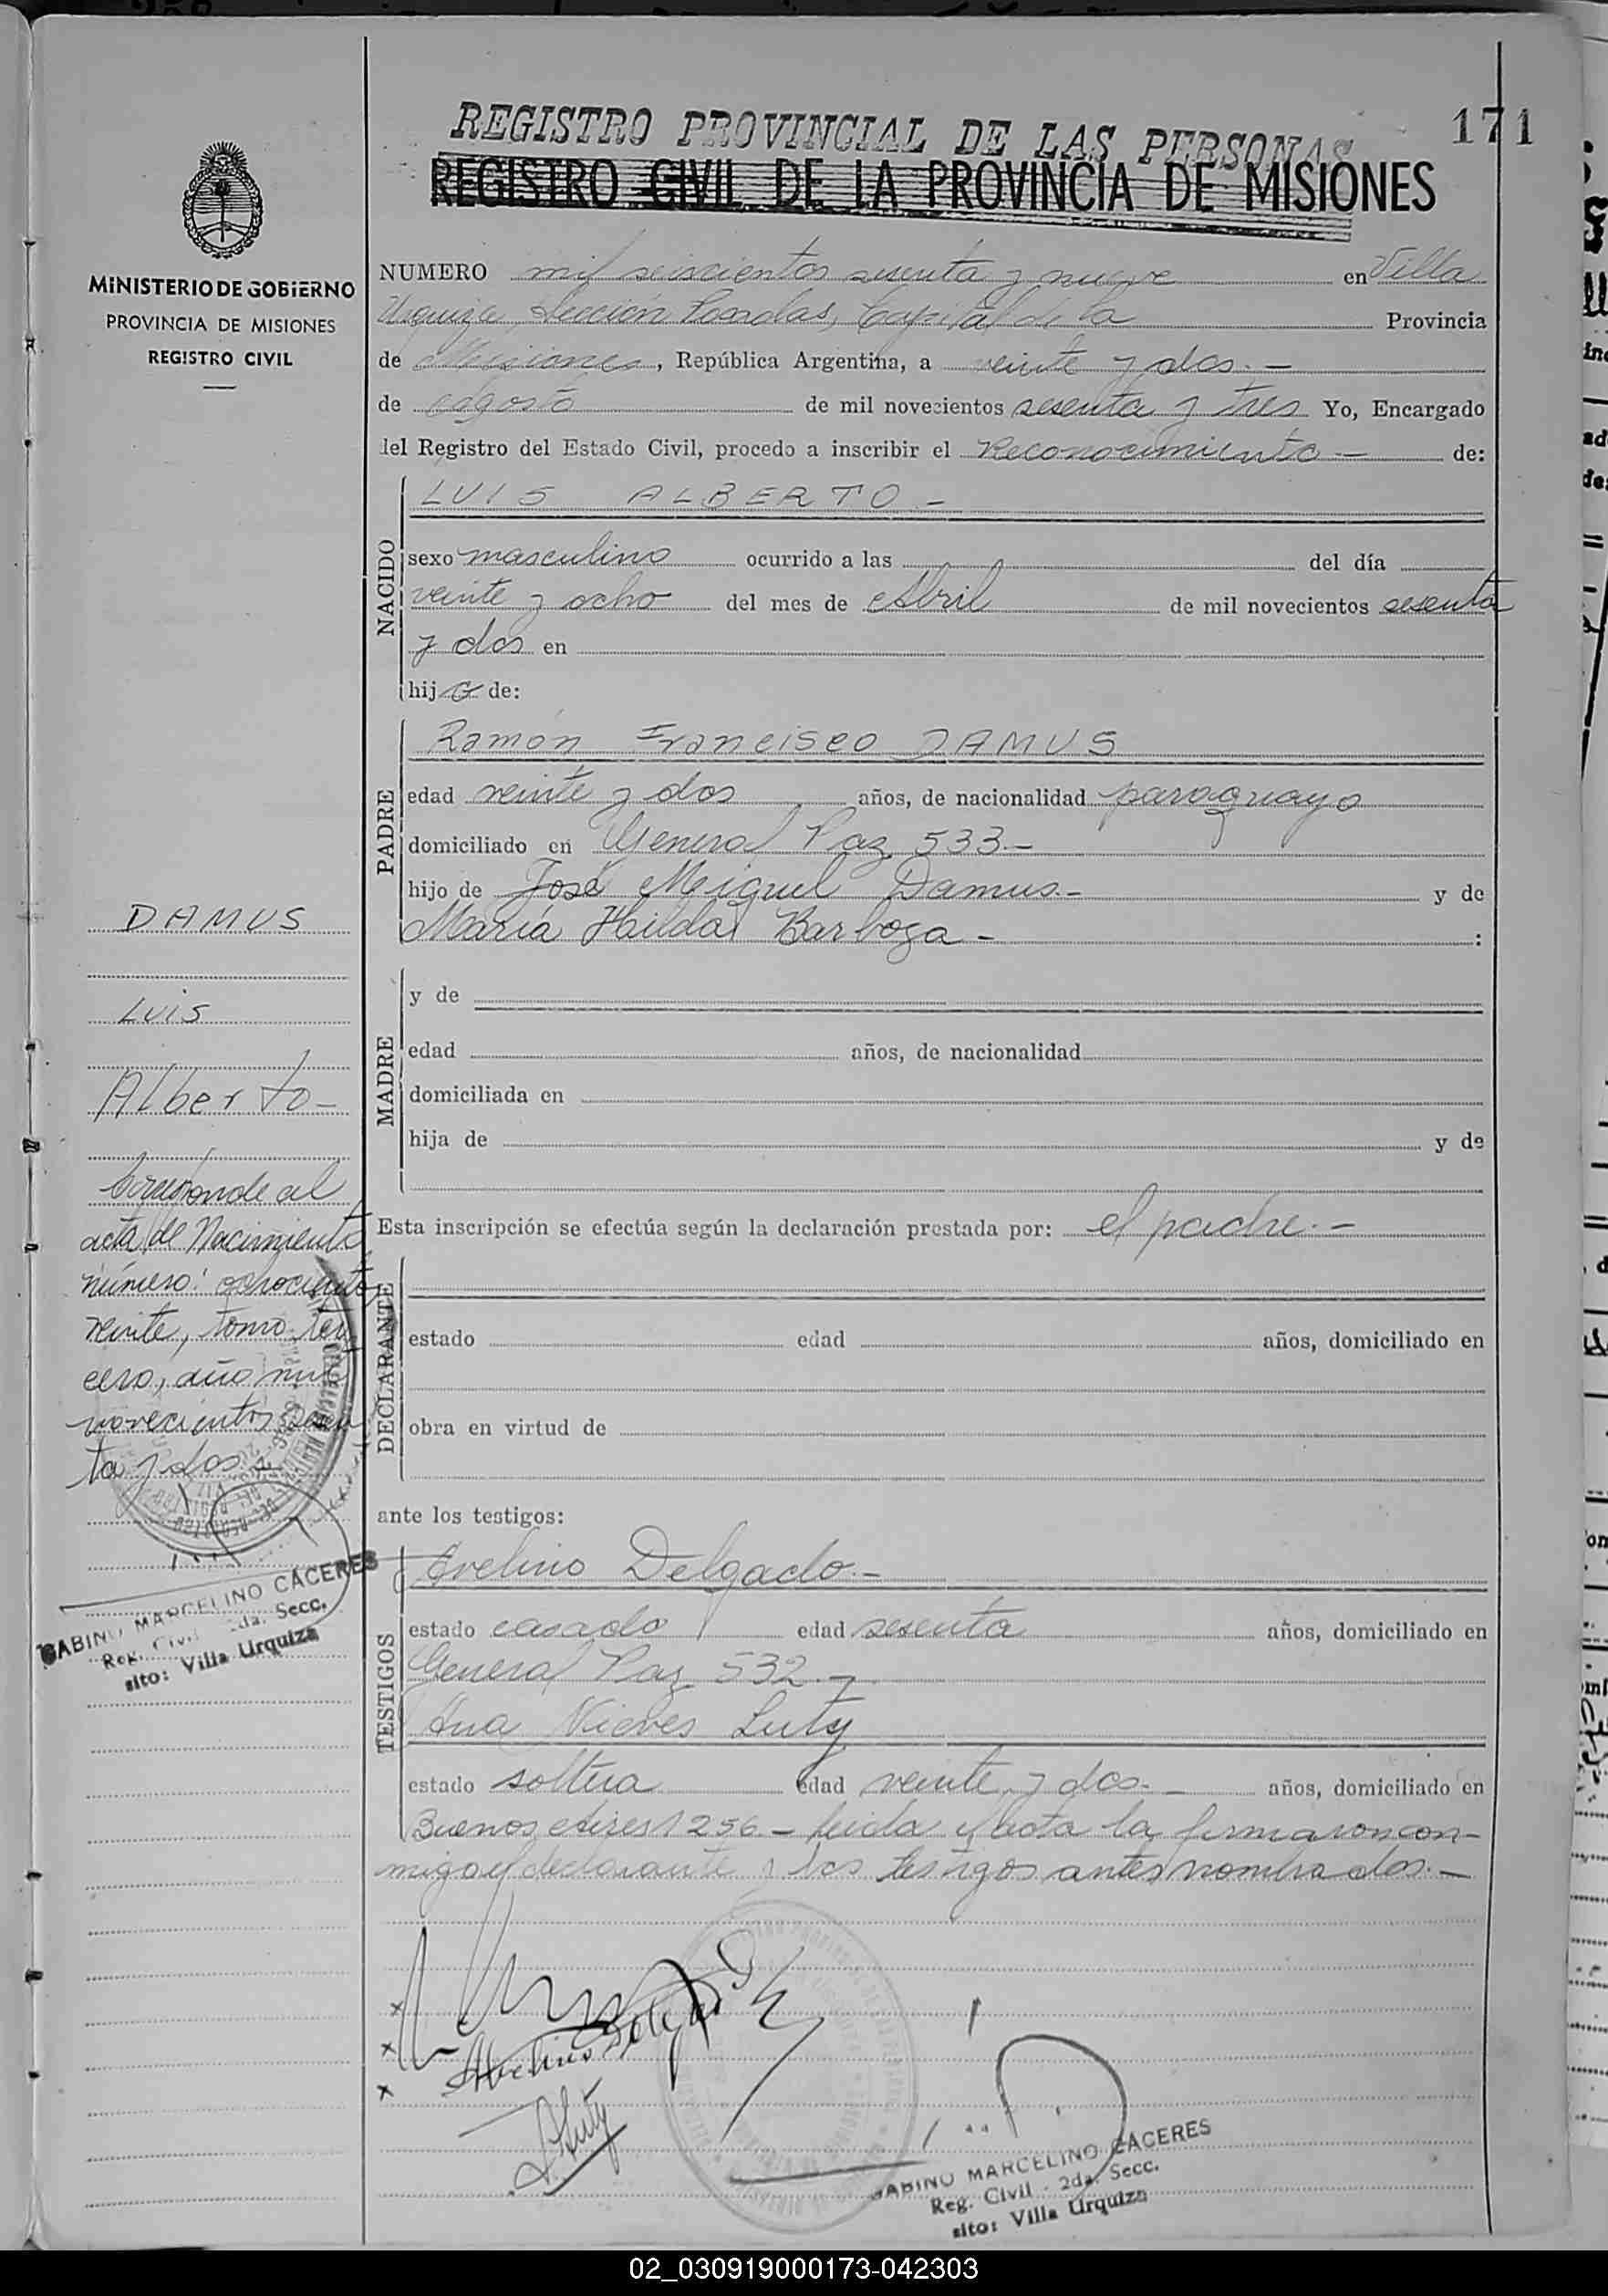 171
REGISTRO PROVINCIAL DE LAS PERSONAS
REGISTRO CIVIL DE LA PROVINCIA DE MISIONES
MINISTERIO DE GOBIERNO
PROVINCIA DE MISIONES
REGISTRO CIVIL
NUMERO mil seiscientos sesenta y nueve en Villa
Urquiza, Sección Posadas, Capital de la Provincia
de Misiones, República Argentina, a veinte y dos.-
de agosto de mil novecientos sesenta y tres Yo, Encargado
del Registro del Estado Civil, procedo a inscribir el Reconocimiento - de:
NACIDO
LUIS ALBERTO -
sexo masculino ocurrido a las del día
veinte y ocho del mes de Abril de mil novecientos sesenta
y dos en
hijo de:
PADRE
Ramón Francisco DAMUS
edad veinte y dos años, de nacionalidad paraguayo
domiciliado en General Paz 533.-
hijo de José Miguel Damus.- y de
María Hilda Barboza - :
MADRE
y de
edad años, de nacionalidad
domiciliada en
hija de y de
Esta inscripción se efectúa según la declaración prestada por: el padre.-
DECLARANTE
estado edad años, domiciliado en
obra en virtud de
ante los testigos:
TESTIGOS
Avelino Delgado.-
estado casado edad sesenta años, domiciliado en
General Paz 532.-
Ana Nieves Luty
estado soltera edad veinte y dos.- años, domiciliado en
Buenos Aires 1256.- leida el acta la firmaron con-
migo el declarante y los testigos antes nombrados.-
DAMUS
Luis
Alberto-
Corresponde al
acta de Nacimiento
número: ochocientos
veinte, tomo ter
cero, año mil
novecientos sesen
ta y dos.
GABINO MARCELINO CACERES
Reg. Civil 2da. Secc.
sito: Villa Urquiza
x
x Avelino Delgado
x
A. Luty
GABINO MARCELINO CACERES
Reg. Civil - 2da. Secc.
sito: Villa Urquiza
02_030919000173-042303